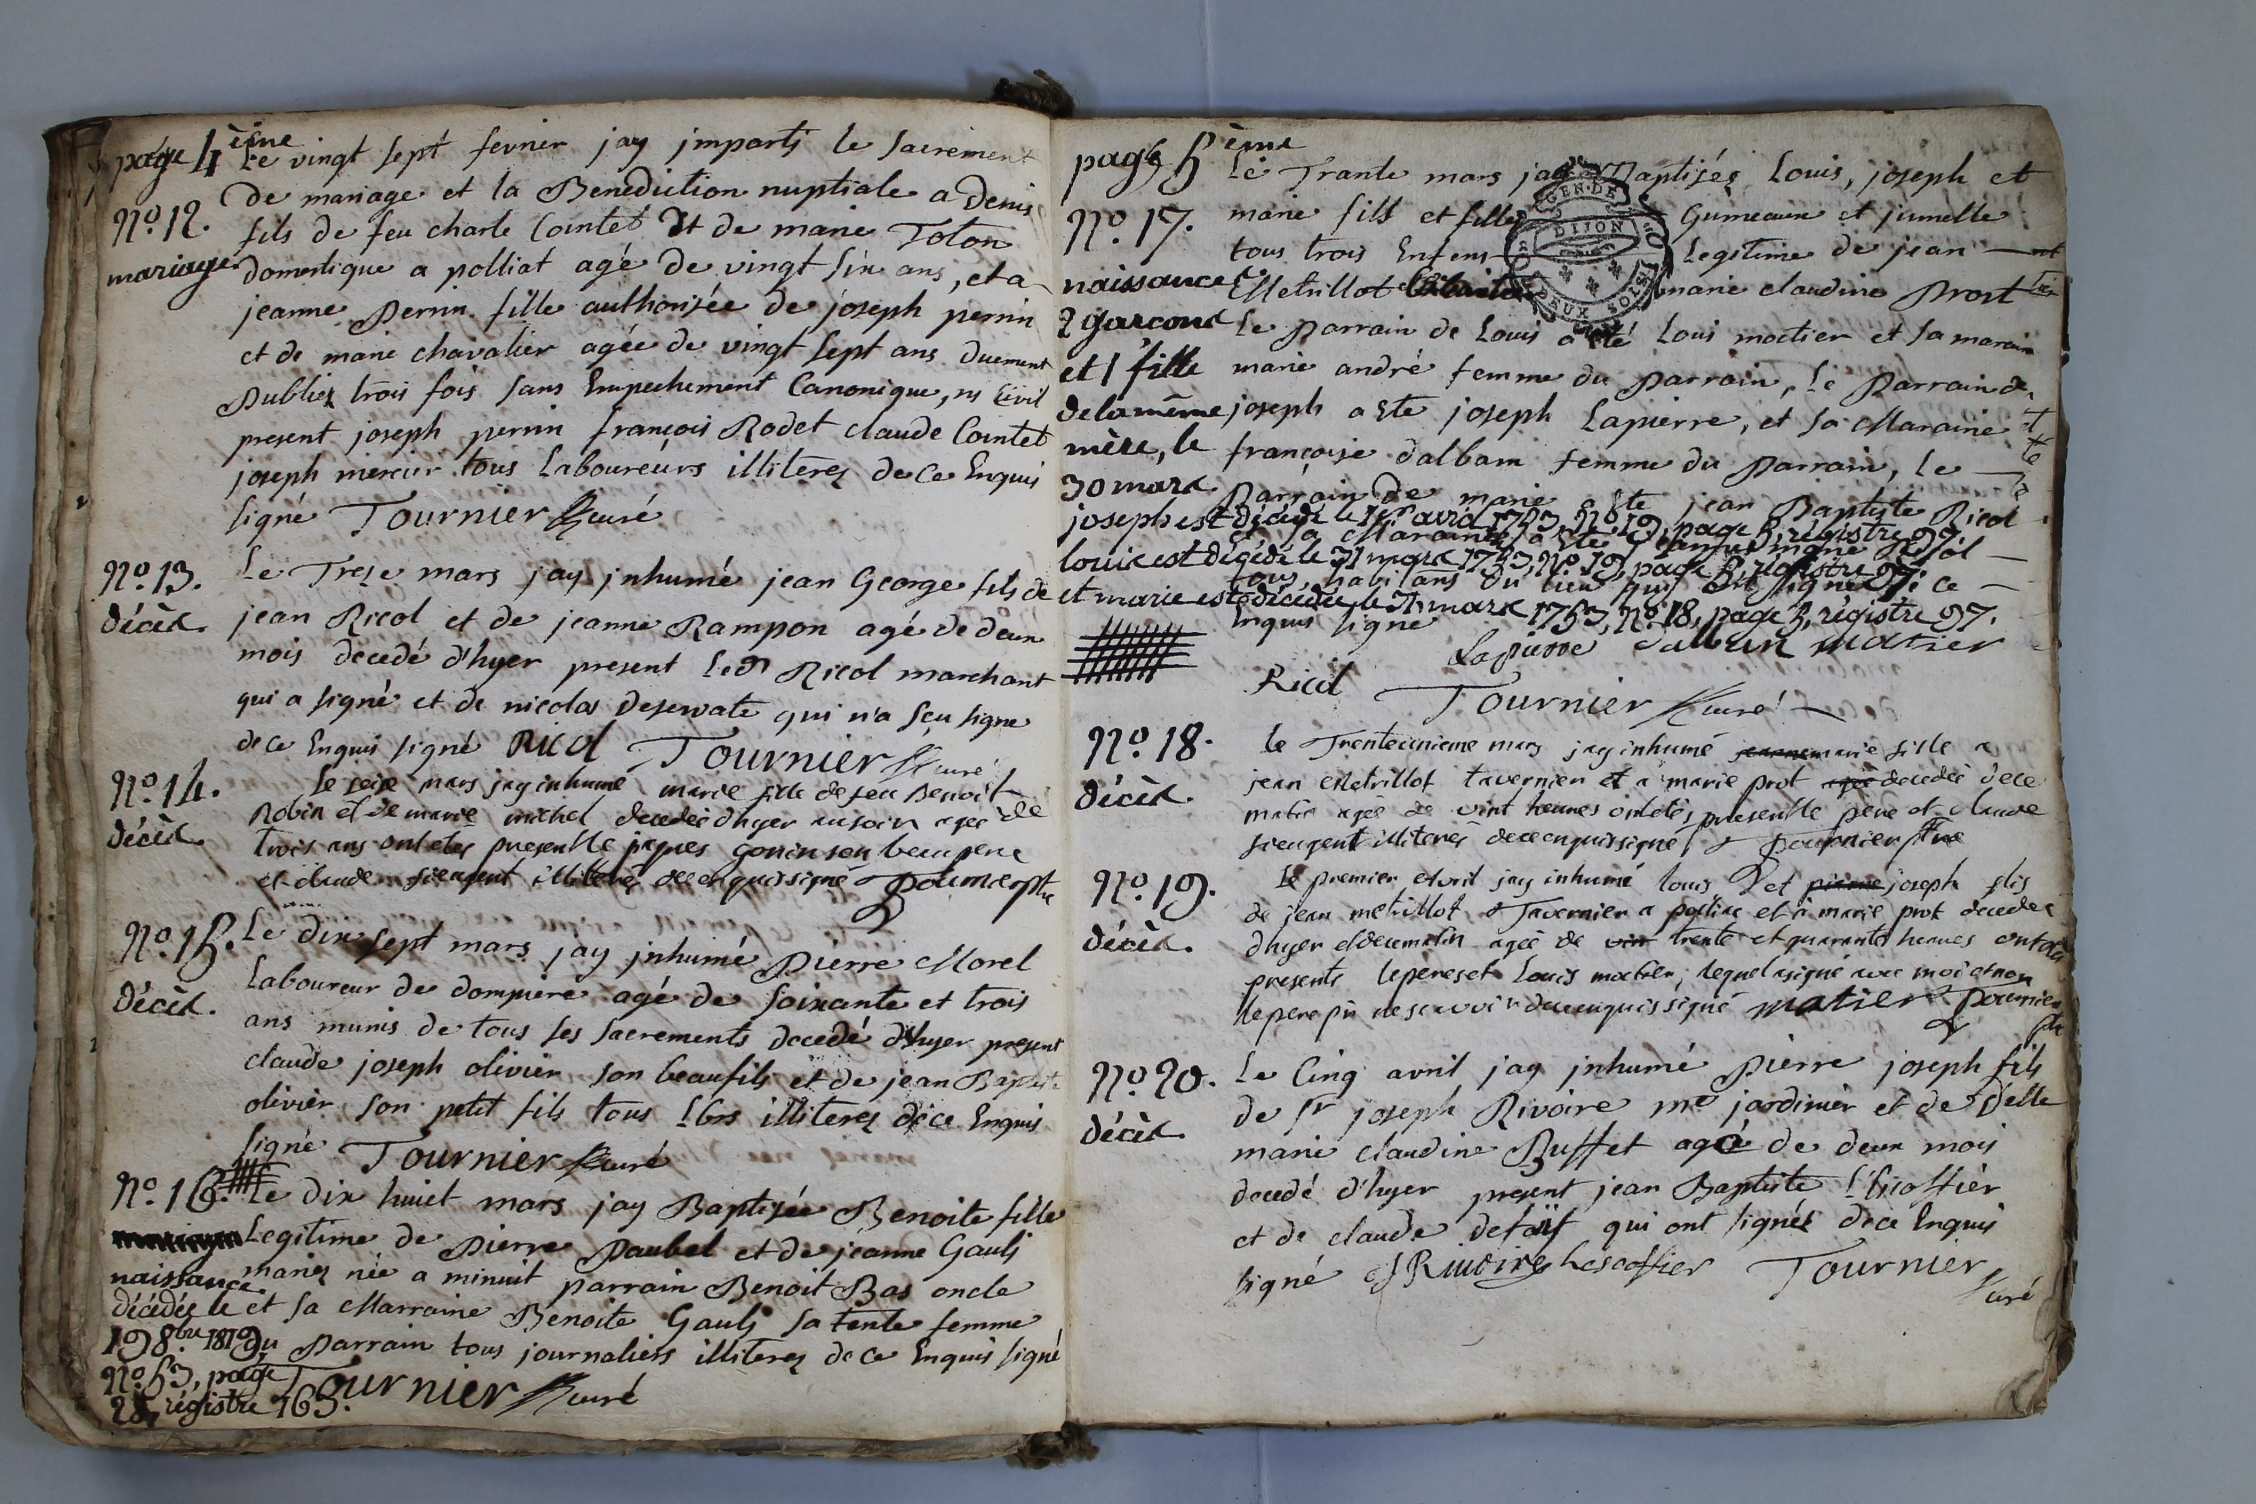 page 4ème
Le vingt sept fevrier jay imparti le sacrement
de mariage et la Benediction nuptiale a denis
No. 12.
fils de feu charle Cointet et de marie Tolon
mariage
domestique a polliat agé de vingt six ans, et a
jeanne Perrin fille authorisée de joseph perrin
et de marie chavalier agée de vingt sept ans duement
Publiez trois fois sans Empechement Canonique, ny Civil
present joseph perrin françois Rodet claude Cointet
joseph mercier tous Laboureurs illiterez de ce Enquis
signé Tournier curé
No. 13.
décèd.
Le Treze mars jay inhumé jean George fils de
jean Ricol et de jeanne Rampon agé de deux
mois decedé d'hyer present led Ricol marchant
qui a signé et de nicolas Desewate qui n'a sçu signe
de ce Enquis signé Ricol Tournier curé
No. 14.
décèd.
le seize mars jay inhumé marie fille de feu Benoit
Robin et de marie michel decedée dhyer ausoir agée de
trois ans ont etés presentle jaques gonin son beaupere
et claude illiterés dece enquis signé
No. 15.
décèd.
Le dix sept mars jay inhumé Pierre Morel
Laboureur de dompiere agé de soixante et trois
ans munis de tous ses sacrements decedé d'hyer present
claude joseph olivier son beaufils et de jean Baptiste
olivier son petit fils tous Lbrs illiterez de ce Enquis
signé Tournier curé
No. 16.
naissance.
décédée le
19 8bre 1819
No. 53, page
25, régistre 163.
Le dix huict mars jay Baptisée Benoite fille
Legitime de Pierre Paubel et de jeanne Gauly
mariez née a minuit parrain Benoit Bas oncle
et sa Marraine Benoite Gauly sa tente femme
du Parrain tous journaliers illiterez de ce Enquis signé
Tournier curé
page 5ème
No. 17.
naissance
2 garcons
et 1 fille
de la même
mère, le
30 mars.
Le Trante mars jay Baptisés Louis, joseph et
marie fils et filles Gumeaux et jumelle
tous trois Enfens Legitime de jean
Metrillot marie claudine Prost
GEN. DE
DIJON
DEUX SOLS
Le Parrain de Louis a eté Loui motier et sa marain
marie andré femme du Parrain, Le Parrain de
joseph a Ete joseph Lapierre, et sa Maraine
françoise dalbam femme du Parrain, Le
Parrain de marie a Ete jean Baptiste Ricol
joseph est décédé le 1er avril 1753, No. 19, page 5, régistre 97.
et sa Maraine a Ete
louis est décédé le 31 mars 1753, No. 19, page 5, régistre 97.
tous habitans du lieu qui ont signez de ce
et marie est décédée le 31 mars 1753, No. 18, page 5, régistre 97.
Enquis signé
Lapierre dalban matier
Ricol Tournier curé
No. 18.
décèd.
le Trenteunieme mars jay inhumé jeanne marie fille a
jean Metrillot tavernier et a marie prot agée decedée dece
matin agée de vint heures ontetés presentle pere et claude
illiterés dece enquis signé
No. 19.
décèd.
Le premier avril jay inhumé louis et pierre joseph fils
de jean metrillot Tavernier a polliat et a marie prot decedés
dhyer et decematin agés de vin trente et quarante heures ont etés
presents leperes et Louis motier, lequel a signé avec moi et non
le pere pr ne scavoir de ce enquis signé matier
No. 20.
décèd.
Le Cinq avril jay inhumé Pierre joseph fils
de Sr joseph Rivoire me jardinier et de Delle
marie claudine Buffet agé de deux mois
decedé d'hyer present jean Baptiste L'Escoffier
et de claude defait qui ont signéz de ce Enquis
signé J Rivoire Lescoffier Tournier
curé